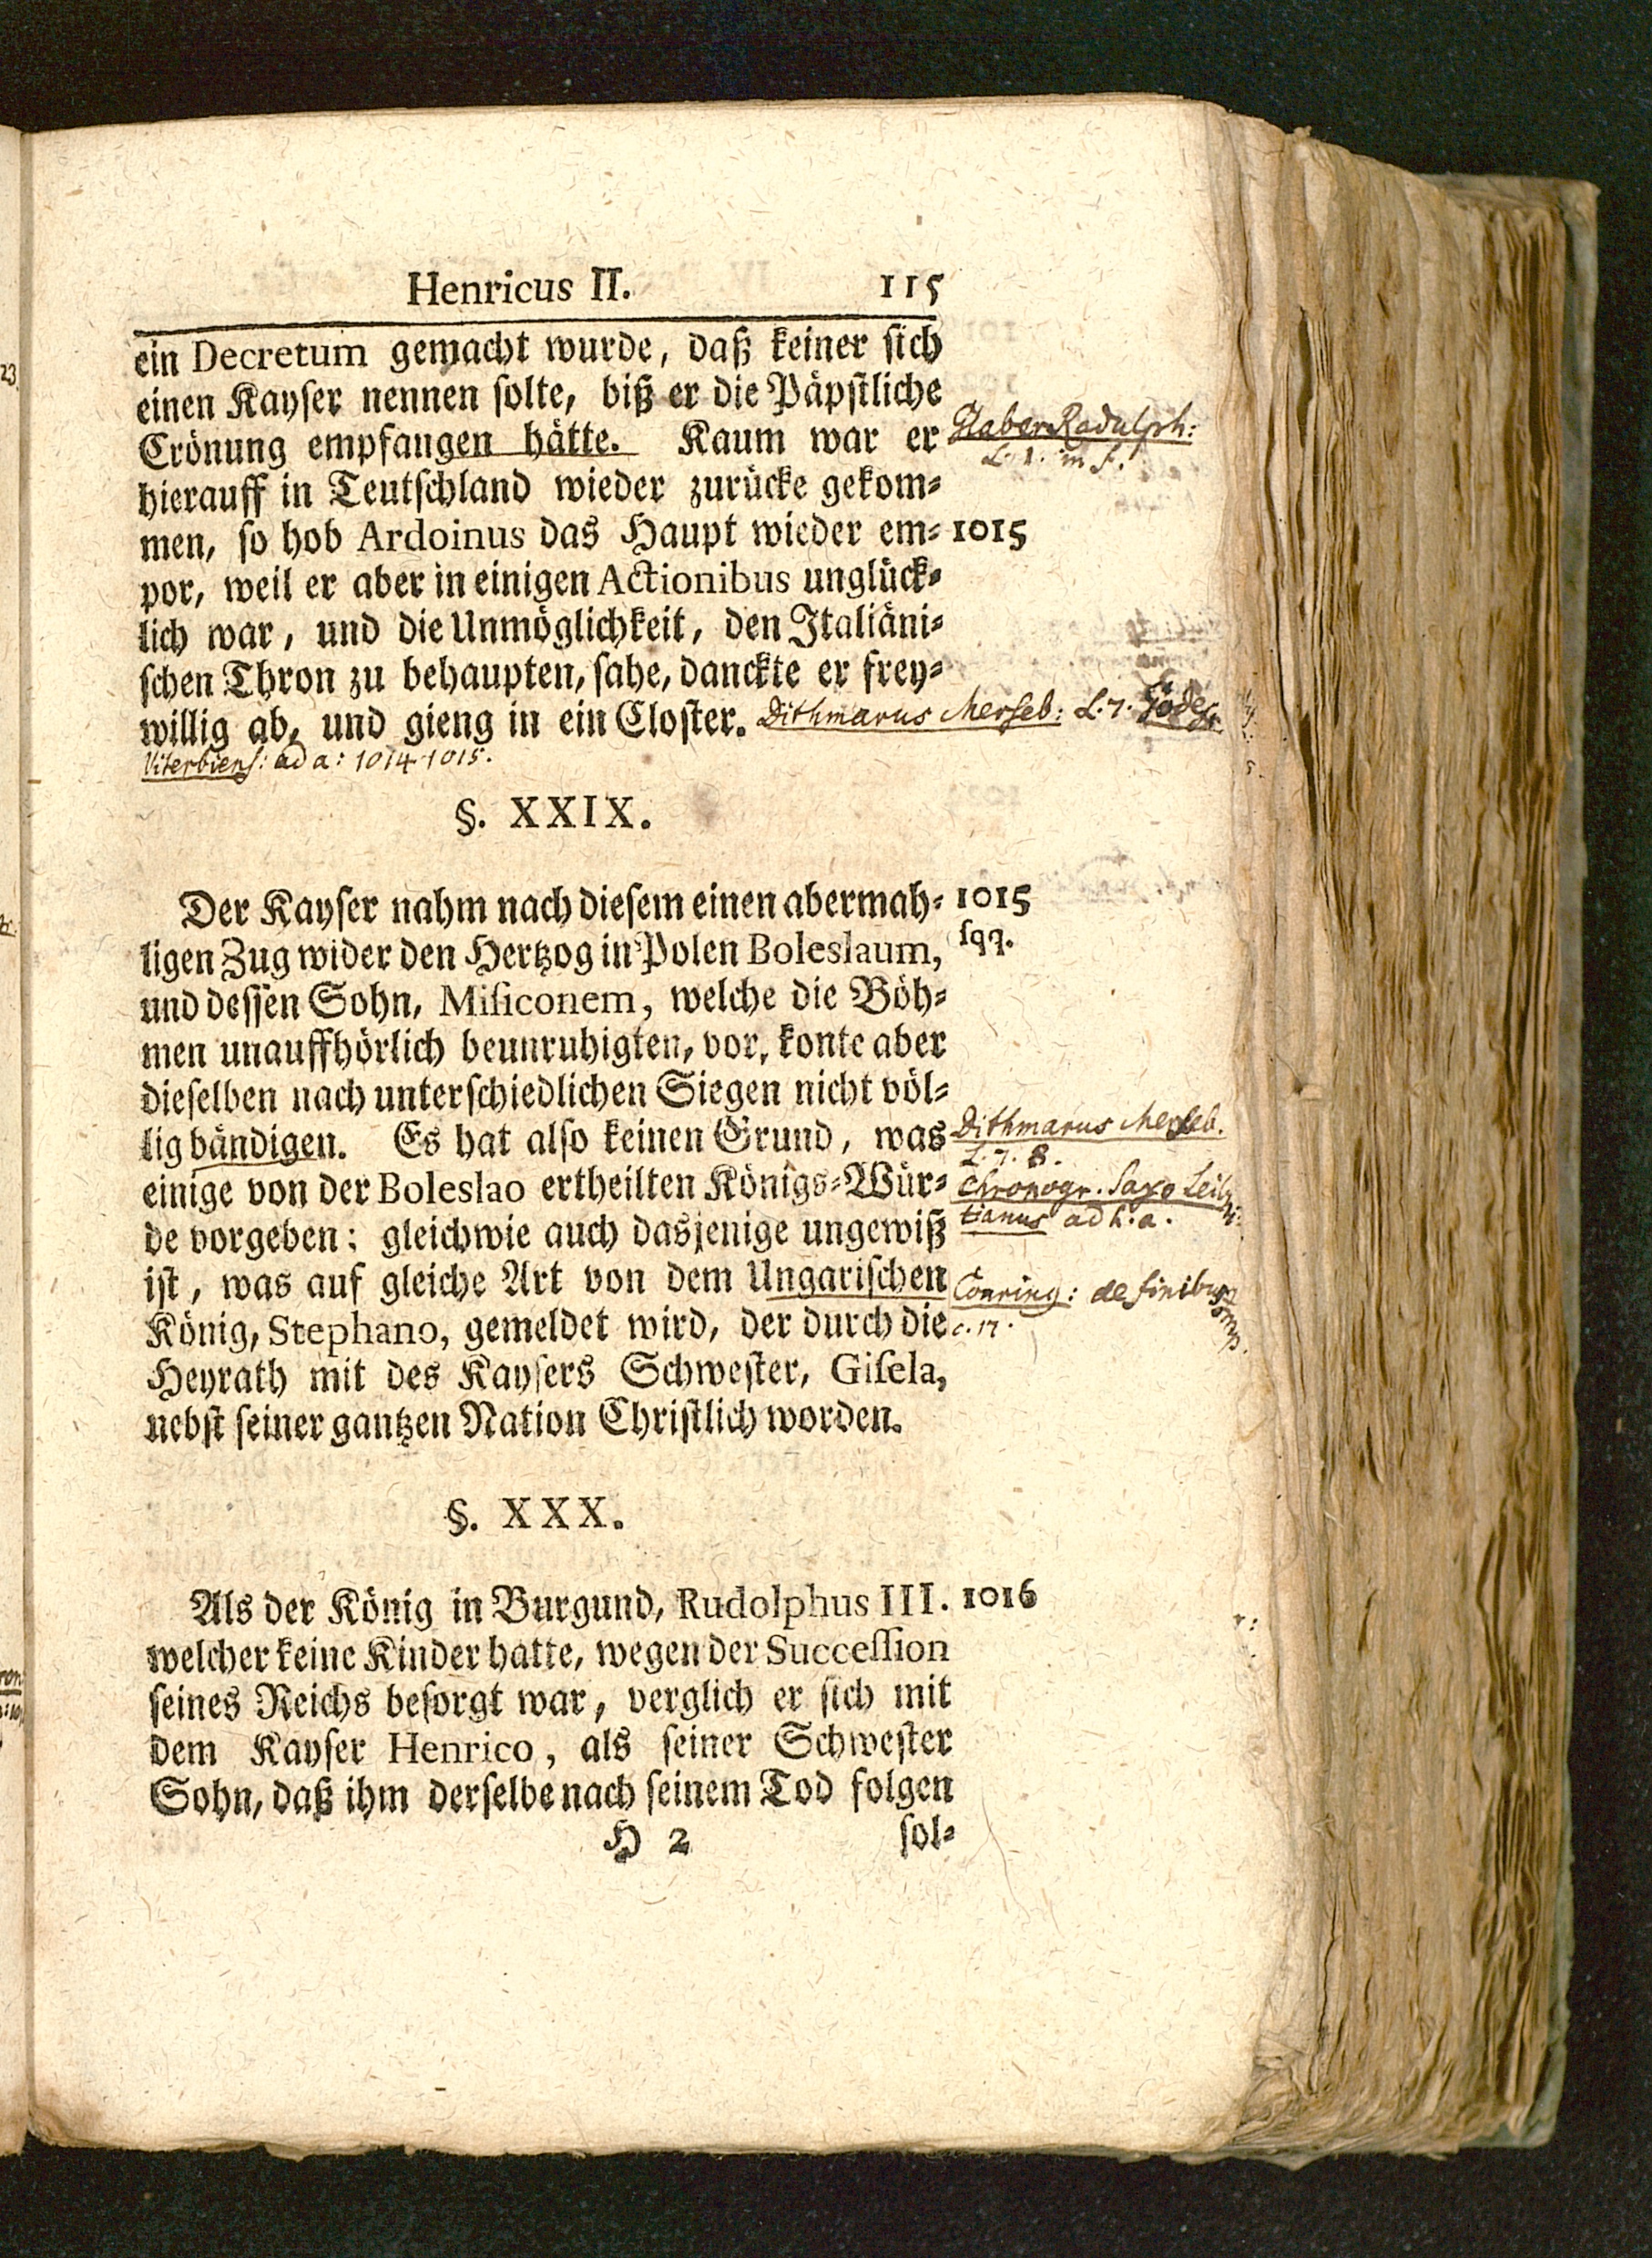 Henricus II. 115
ein Decretum gemacht wurde, daß keiner sich
einen Kayser nennen solte, biß er die Päpstliche
Crönung empfangen hätte. Kaum war er
Glaber Radulph:
L. 1. in f.
hierauff in Teutschland wieder zurücke gekom-
men, so hob Ardoinus das Haupt wieder em- 1015
por, weil er aber in einigen Actionibus unglück-
lich war, und die Unmöglichkeit, den Italiäni-
schen Thron zu behaupten, sahe, danckte er frey-
willig ab, und gieng in ein Closter. Dithmarus Merseb: L. 7. Godefr.
Viterbiens: ad a: 1014. 1015.
§. XXIX.
Der Kayser nahm nach diesem einen abermah- 1015
ligen Zug wider den Hertzog in Polen Boleslaum, sqq.
und dessen Sohn, Misiconem, welche die Böh-
men unauffhörlich beunruhigten, vor, konte aber
dieselben nach unterschiedlichen Siegen nicht völ-
lig bändigen. Es hat also keinen Grund, was
Dithmarus Merseb.
L. 7. 8.
einige von der Boleslao ertheilten Königs-Wür-
Chronogr. Saxo Leibni-
de vorgeben; gleichwie auch dasjenige ungewiß
tianus ad h. a.
ist, was auf gleiche Art von dem Ungarischen
Conring: de finibus Imp.
König, Stephano, gemeldet wird, der durch die
c. 17.
Heyrath mit des Kaysers Schwester, Gisela,
nebst seiner gantzen Nation Christlich worden.
§. XXX.
Als der König in Burgund, Rudolphus III. 1016
welcher keine Kinder hatte, wegen der Succession
seines Reichs besorgt war, verglich er sich mit
dem Kayser Henrico, als seiner Schwester
Sohn, daß ihm derselbe nach seinem Tod folgen
H 2 sol-